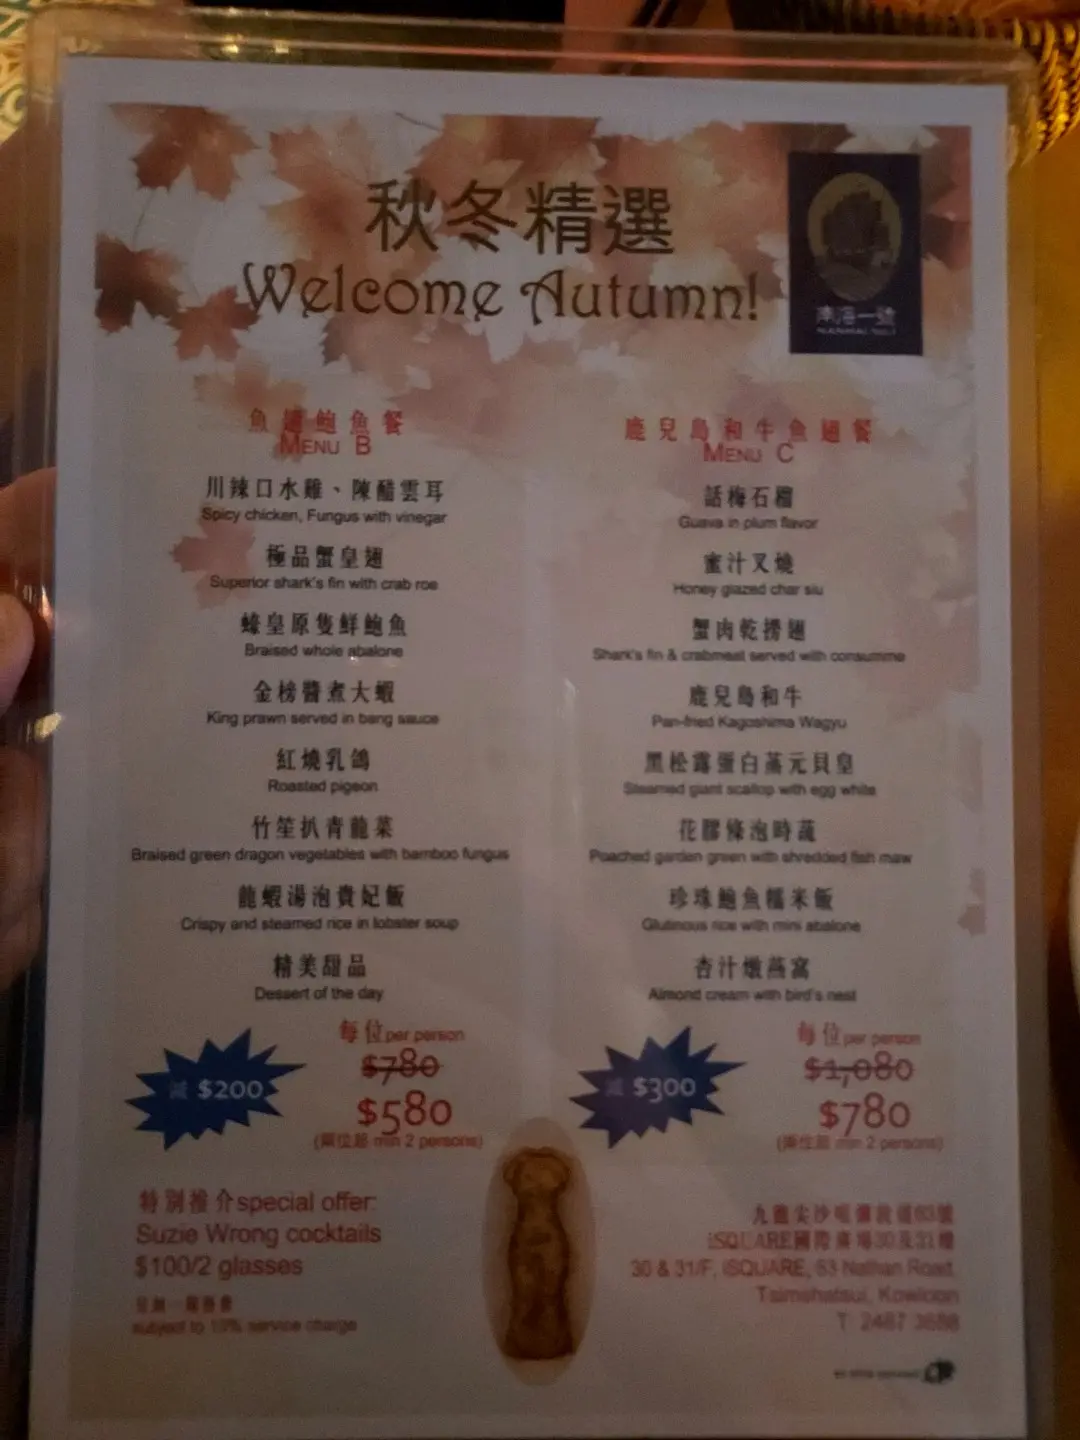 秋冬精選
Welcome Autumn!
南海一號
NANHAI NO.1
魚翅鮑魚餐
MENU B
川辣口水雞、陳醋雲耳
Spicy chicken, Fungus with vinegar
極品蟹皇翅
Superior shark's fin with crab roe
蠔皇原隻鮮鮑魚
Braised whole abalone
金榜醬煮大蝦
King prawn served in bang sauce
紅燒乳鴿
Roasted pigeon
竹笙扒青龍菜
Braised green dragon vegetables with bamboo fungus
龍蝦湯泡貴妃飯
Crispy and steamed rice in lobster soup
精美甜品
Dessert of the day
每位per person
$780
$580
(兩位起 min 2 persons)
減 $200
鹿兒島和牛魚翅餐
MENU C
話梅石榴
Guava in plum flavor
蜜汁叉燒
Honey glazed char siu
蟹肉乾撈翅
Shark's fin & crabmeat served with consumme
鹿兒島和牛
Pan-fried Kagoshima Wagyu
黑松露蛋白蒸元貝皇
Steamed giant scallop with egg white
花膠條泡時蔬
Poached garden green with shredded fish maw
珍珠鮑魚糯米飯
Glutinous rice with mini abalone
杏汁燉燕窩
Almond cream with bird's nest
每位per person
$1,080
$780
(兩位起 min 2 persons)
減 $300
特別推介special offer:
Suzie Wrong cocktails
$100/2 glasses
subject to 10% service charge
九龍尖沙咀彌敦道63號
iSQUARE國際廣場30及31樓
30 & 31/F, iSQUARE, 63 Nathan Road,
Tsimshatsui, Kowloon
T 2487 3688